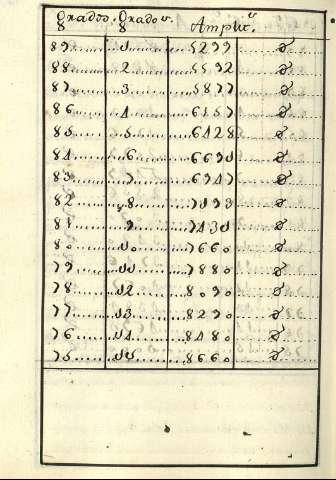 Grados. Grados. Amplit.
89 1 5299
88 2 5592
87 3 5877
86 4 6157
85 5 6428
84 6 6690
83 7 6947
82 8
81 9 7430
80 10 7660
79 11 7880
78 12 8090
77 13 8290
76 14 8480
75 15 8660